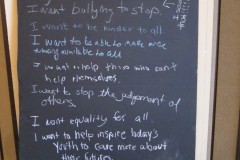 I want bullying to stop.
I want to be kinder to all
I want to be able to make
to all
I want to help those who can't
help themselves.
I want to stop the judgement of
others.
I want equality for all.
I want to help inspire today's
Youth to care more about
their future